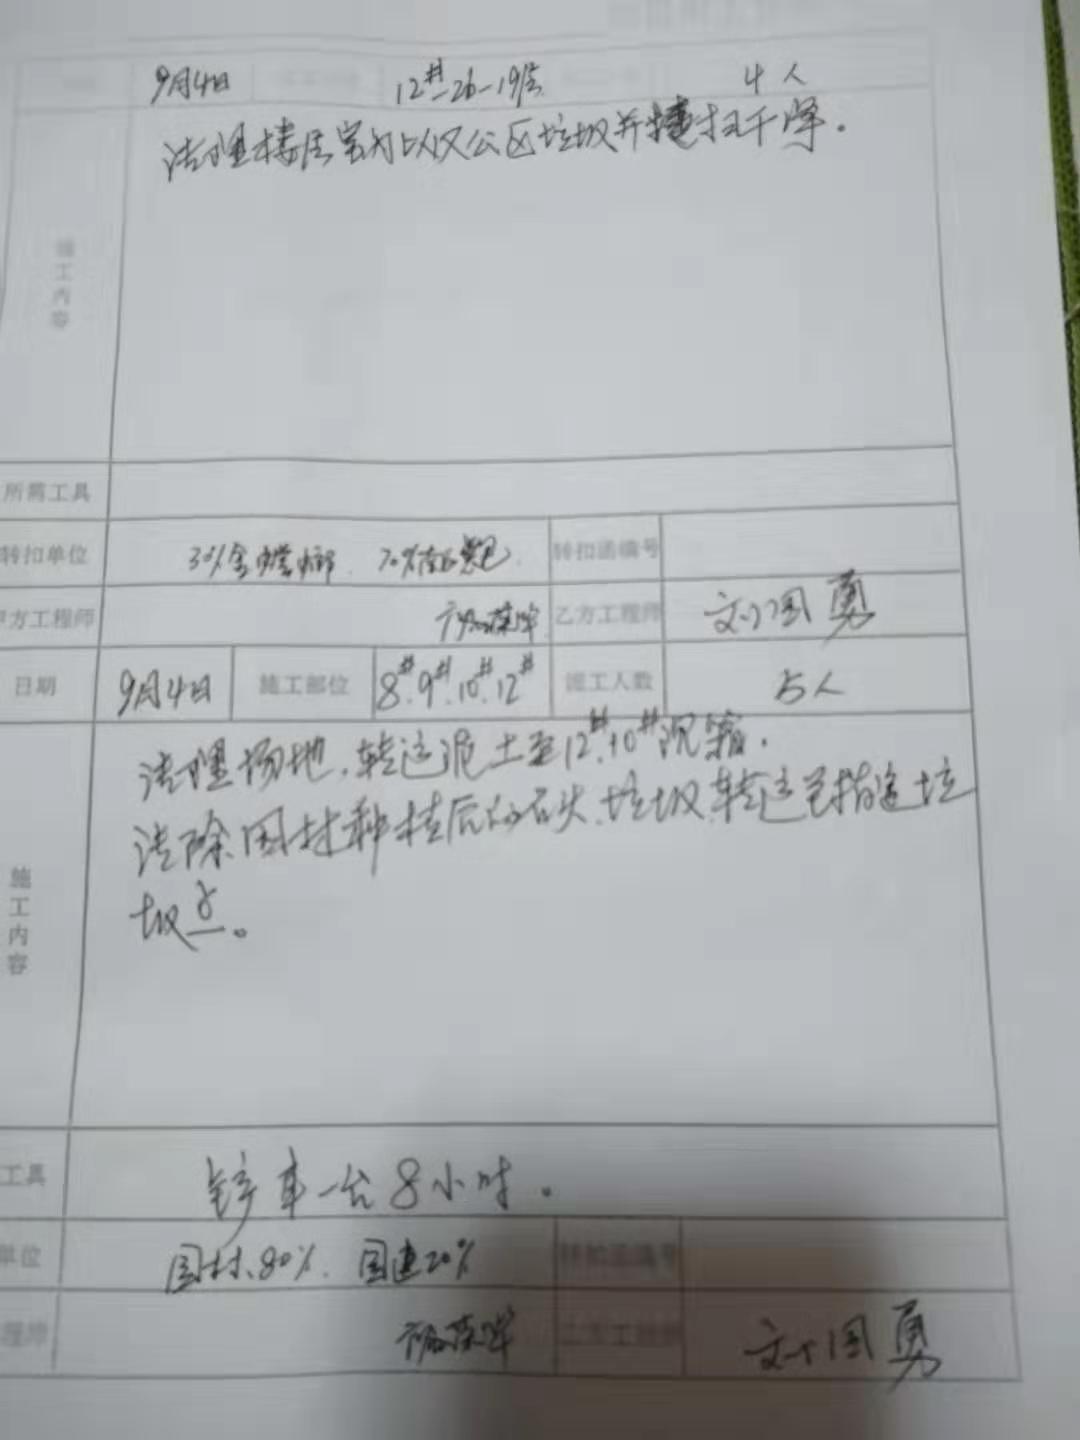 9月4日 12#-26-19层 4人
清理楼层室内以及公区垃圾并打扫干净.
施工内容
所需工具
转扣单位 30% 70% 转扣函编号
甲方工程师 乙方工程师 刘国勇
日期 9月4日 施工部位 8#.9#.10#.12# 派工人数 5人
清理场地.转运泥土至12#.10#沉箱.
清除园林种植后的石头.垃圾.转运至指定垃
圾点。
施工内容
工具 铲车一台8小时.
单位 园林80%. 国建20% 转扣函编号
程师 乙方工程师 刘国勇